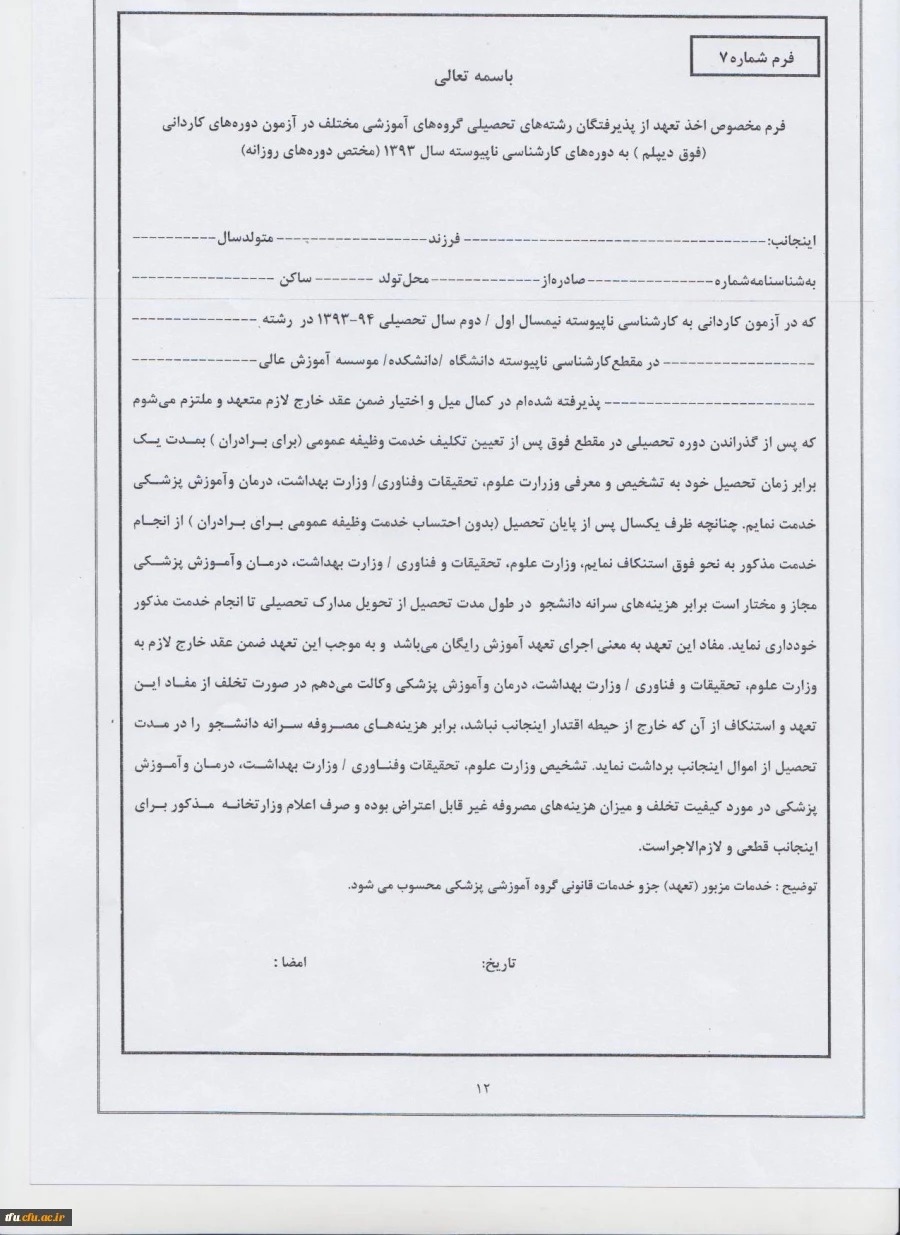 فرم شماره ۷
باسمه تعالی
فرم مخصوص اخذ تعهد از پذیرفتگان رشته‌های تحصیلی گروه‌های آموزشی مختلف در آزمون دوره‌های کاردانی
(فوق دیپلم ) به دوره‌های کارشناسی ناپیوسته سال ۱۳۹۳ (مختص دوره‌های روزانه)
اینجانب:------------------------------------ فرزند------------------ متولدسال----------
به‌شناسنامه‌شماره---------------صادره‌از-------------محل‌تولد ------- ساکن -----------------
که در آزمون کاردانی به کارشناسی ناپیوسته نیمسال اول / دوم سال تحصیلی ۹۴-۱۳۹۳ در رشته ---------------
------------------ در مقطع‌کارشناسی ناپیوسته دانشگاه /دانشکده/ موسسه آموزش عالی---------------
------------------------- پذیرفته شده‌ام در کمال میل و اختیار ضمن عقد خارج لازم متعهد و ملتزم می‌شوم
که پس از گذراندن دوره تحصیلی در مقطع فوق پس از تعیین تکلیف خدمت وظیفه عمومی (برای برادران ) بمدت یک
برابر زمان تحصیل خود به تشخیص و معرفی وزرارت علوم، تحقیقات وفناوری/ وزارت بهداشت، درمان وآموزش پزشکی
خدمت نمایم. چنانچه ظرف یکسال پس از پایان تحصیل (بدون احتساب خدمت وظیفه عمومی برای برادران ) از انجام
خدمت مذکور به نحو فوق استنکاف نمایم، وزارت علوم، تحقیقات و فناوری / وزارت بهداشت، درمان وآموزش پزشکی
مجاز و مختار است برابر هزینه‌های سرانه دانشجو در طول مدت تحصیل از تحویل مدارک تحصیلی تا انجام خدمت مذکور
خودداری نماید. مفاد این تعهد به معنی اجرای تعهد آموزش رایگان می‌باشد و به موجب این تعهد ضمن عقد خارج لازم به
وزارت علوم، تحقیقات و فناوری / وزارت بهداشت، درمان وآموزش پزشکی وکالت می‌دهم در صورت تخلف از مفاد این
تعهد و استنکاف از آن که خارج از حیطه اقتدار اینجانب نباشد، برابر هزینه‌های مصروفه سرانه دانشجو را در مدت
تحصیل از اموال اینجانب برداشت نماید. تشخیص وزارت علوم، تحقیقات وفناوری / وزارت بهداشت، درمان وآموزش
پزشکی در مورد کیفیت تخلف و میزان هزینه‌های مصروفه غیر قابل اعتراض بوده و صرف اعلام وزارتخانه مذکور برای
اینجانب قطعی و لازم‌الاجراست.
توضیح : خدمات مزبور (تعهد) جزو خدمات قانونی گروه آموزشی پزشکی محسوب می شود.
تاریخ: امضا :
۱۲
tfu.cfu.ac.ir